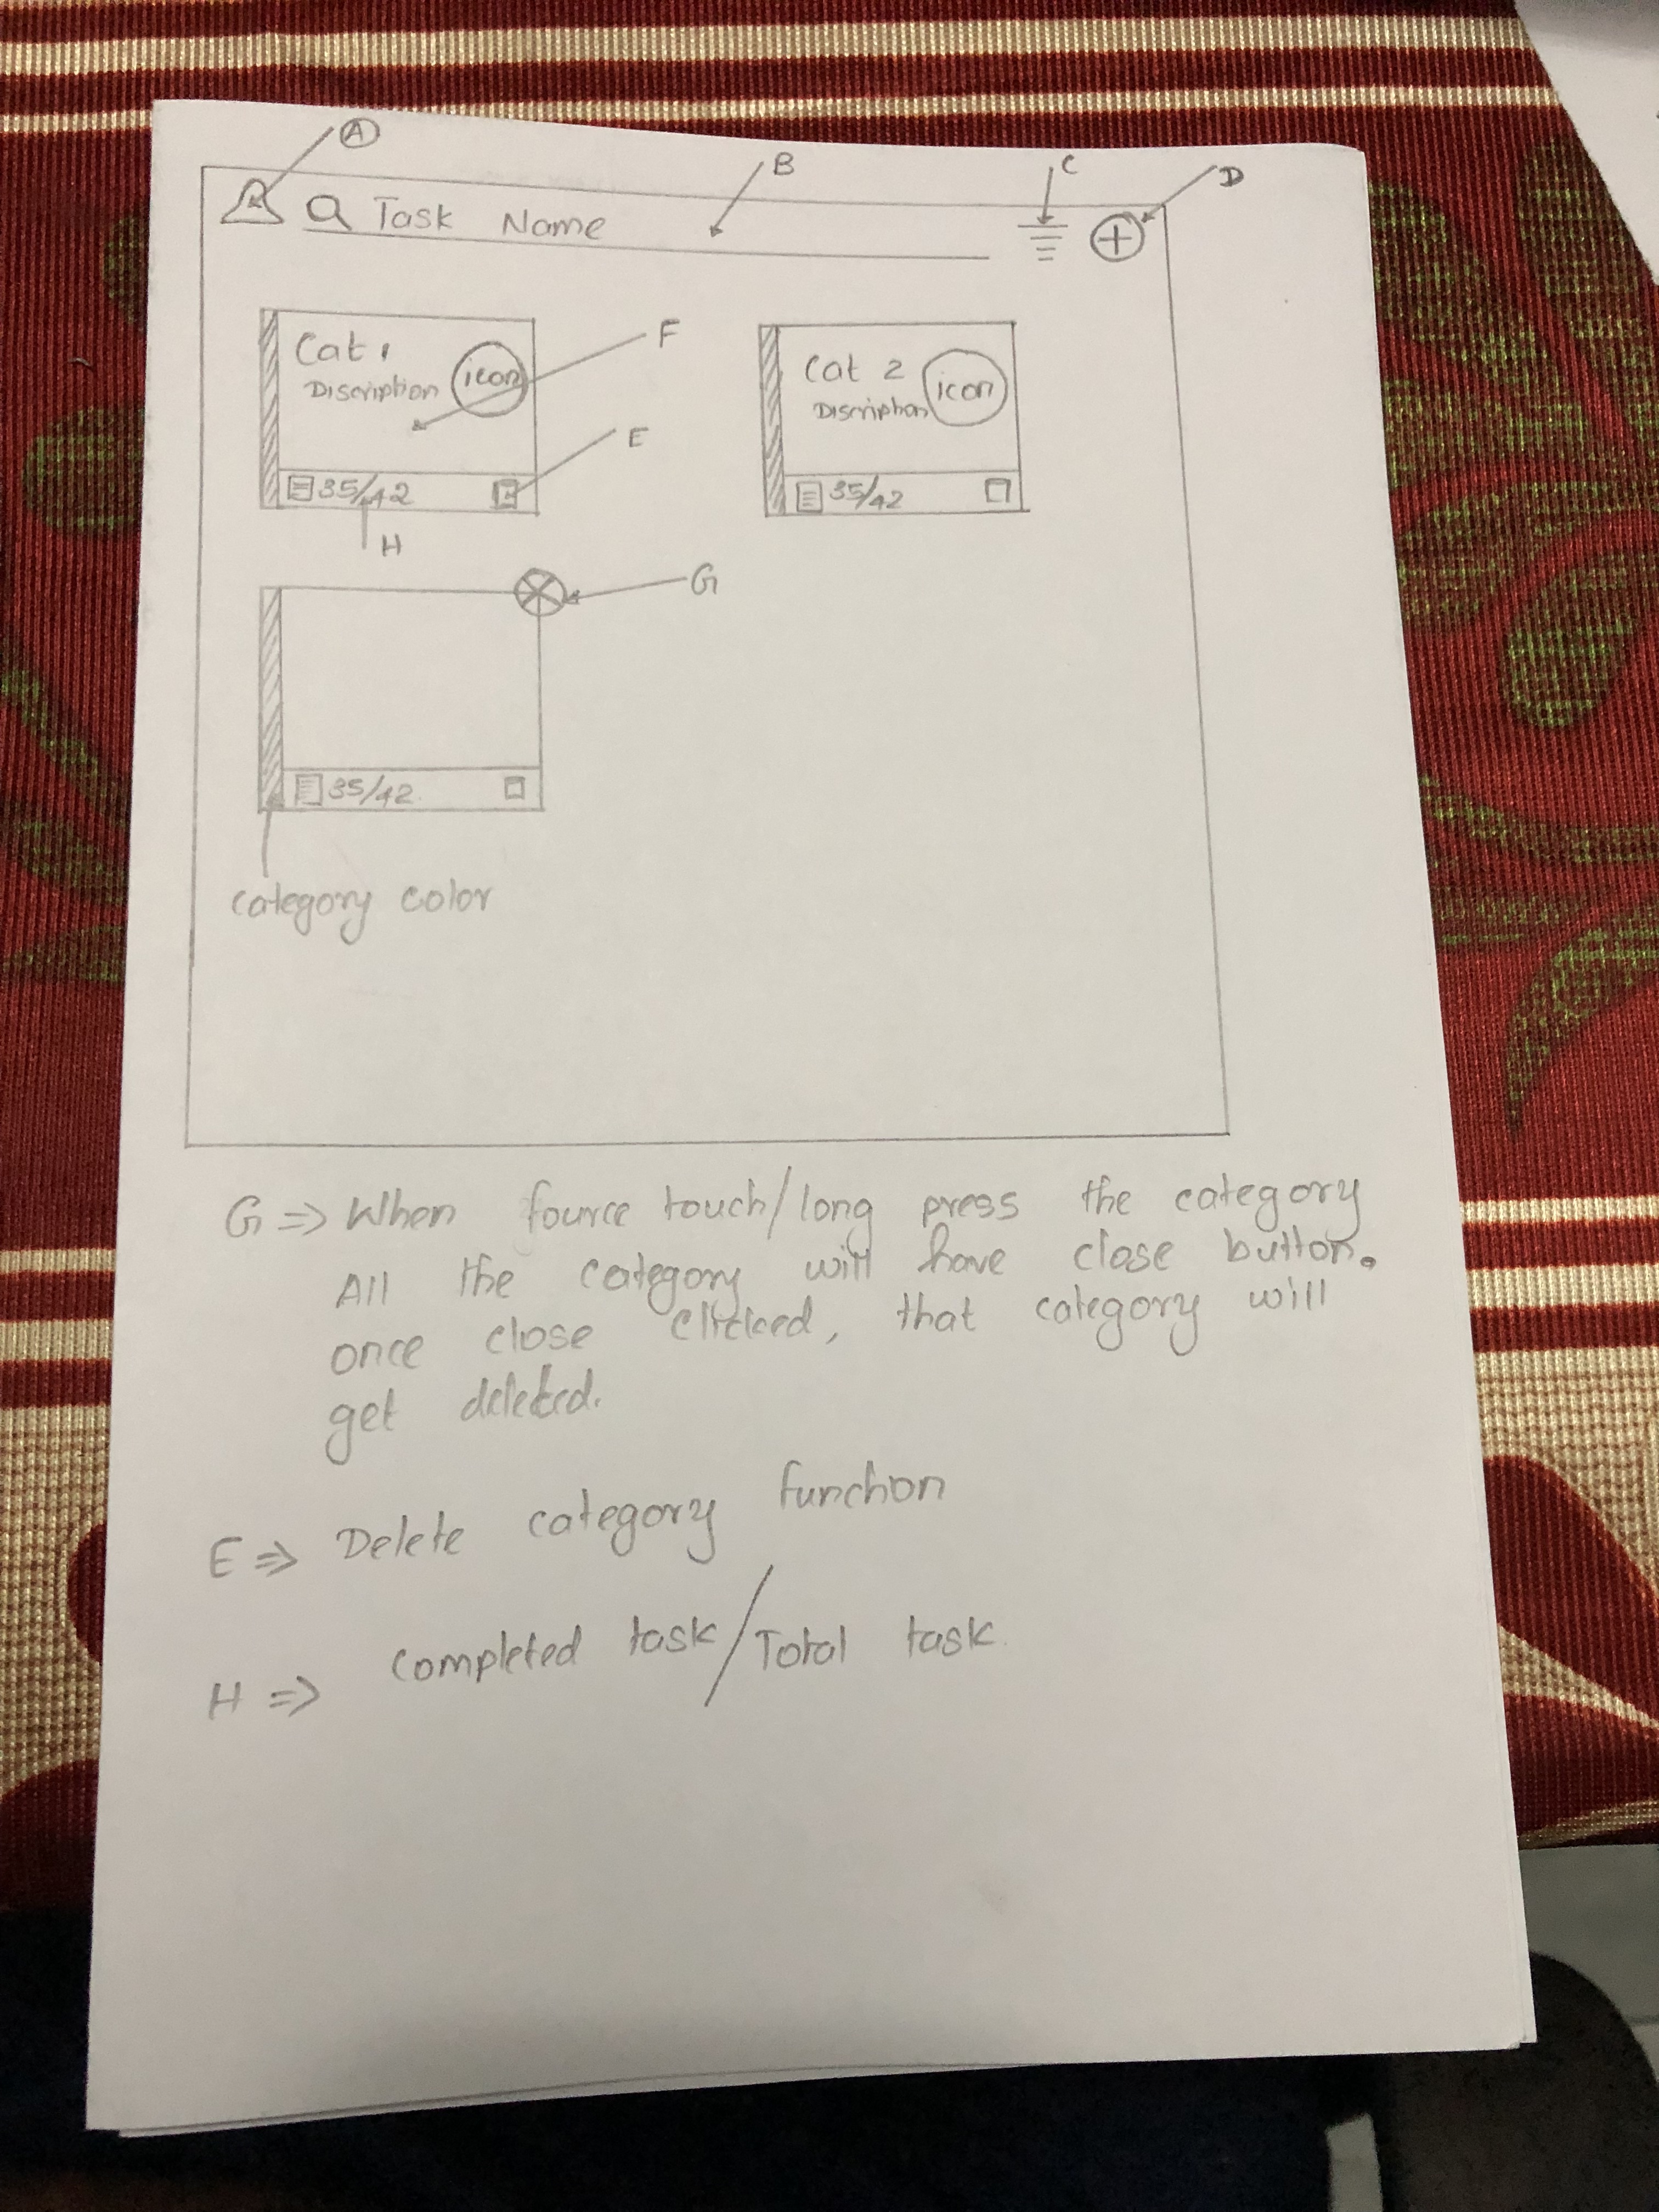 A
B
C
D
Task Name
Cat 1
Discription
icon
F
E
35/42
H
Cat 2
Discription
icon
35/42
G
35/42
category color
G => When fource touch/long press the category
All the category will have close button.
once close clicked, that category will
get deleted.
E => Delete category function
H => completed task/Total task